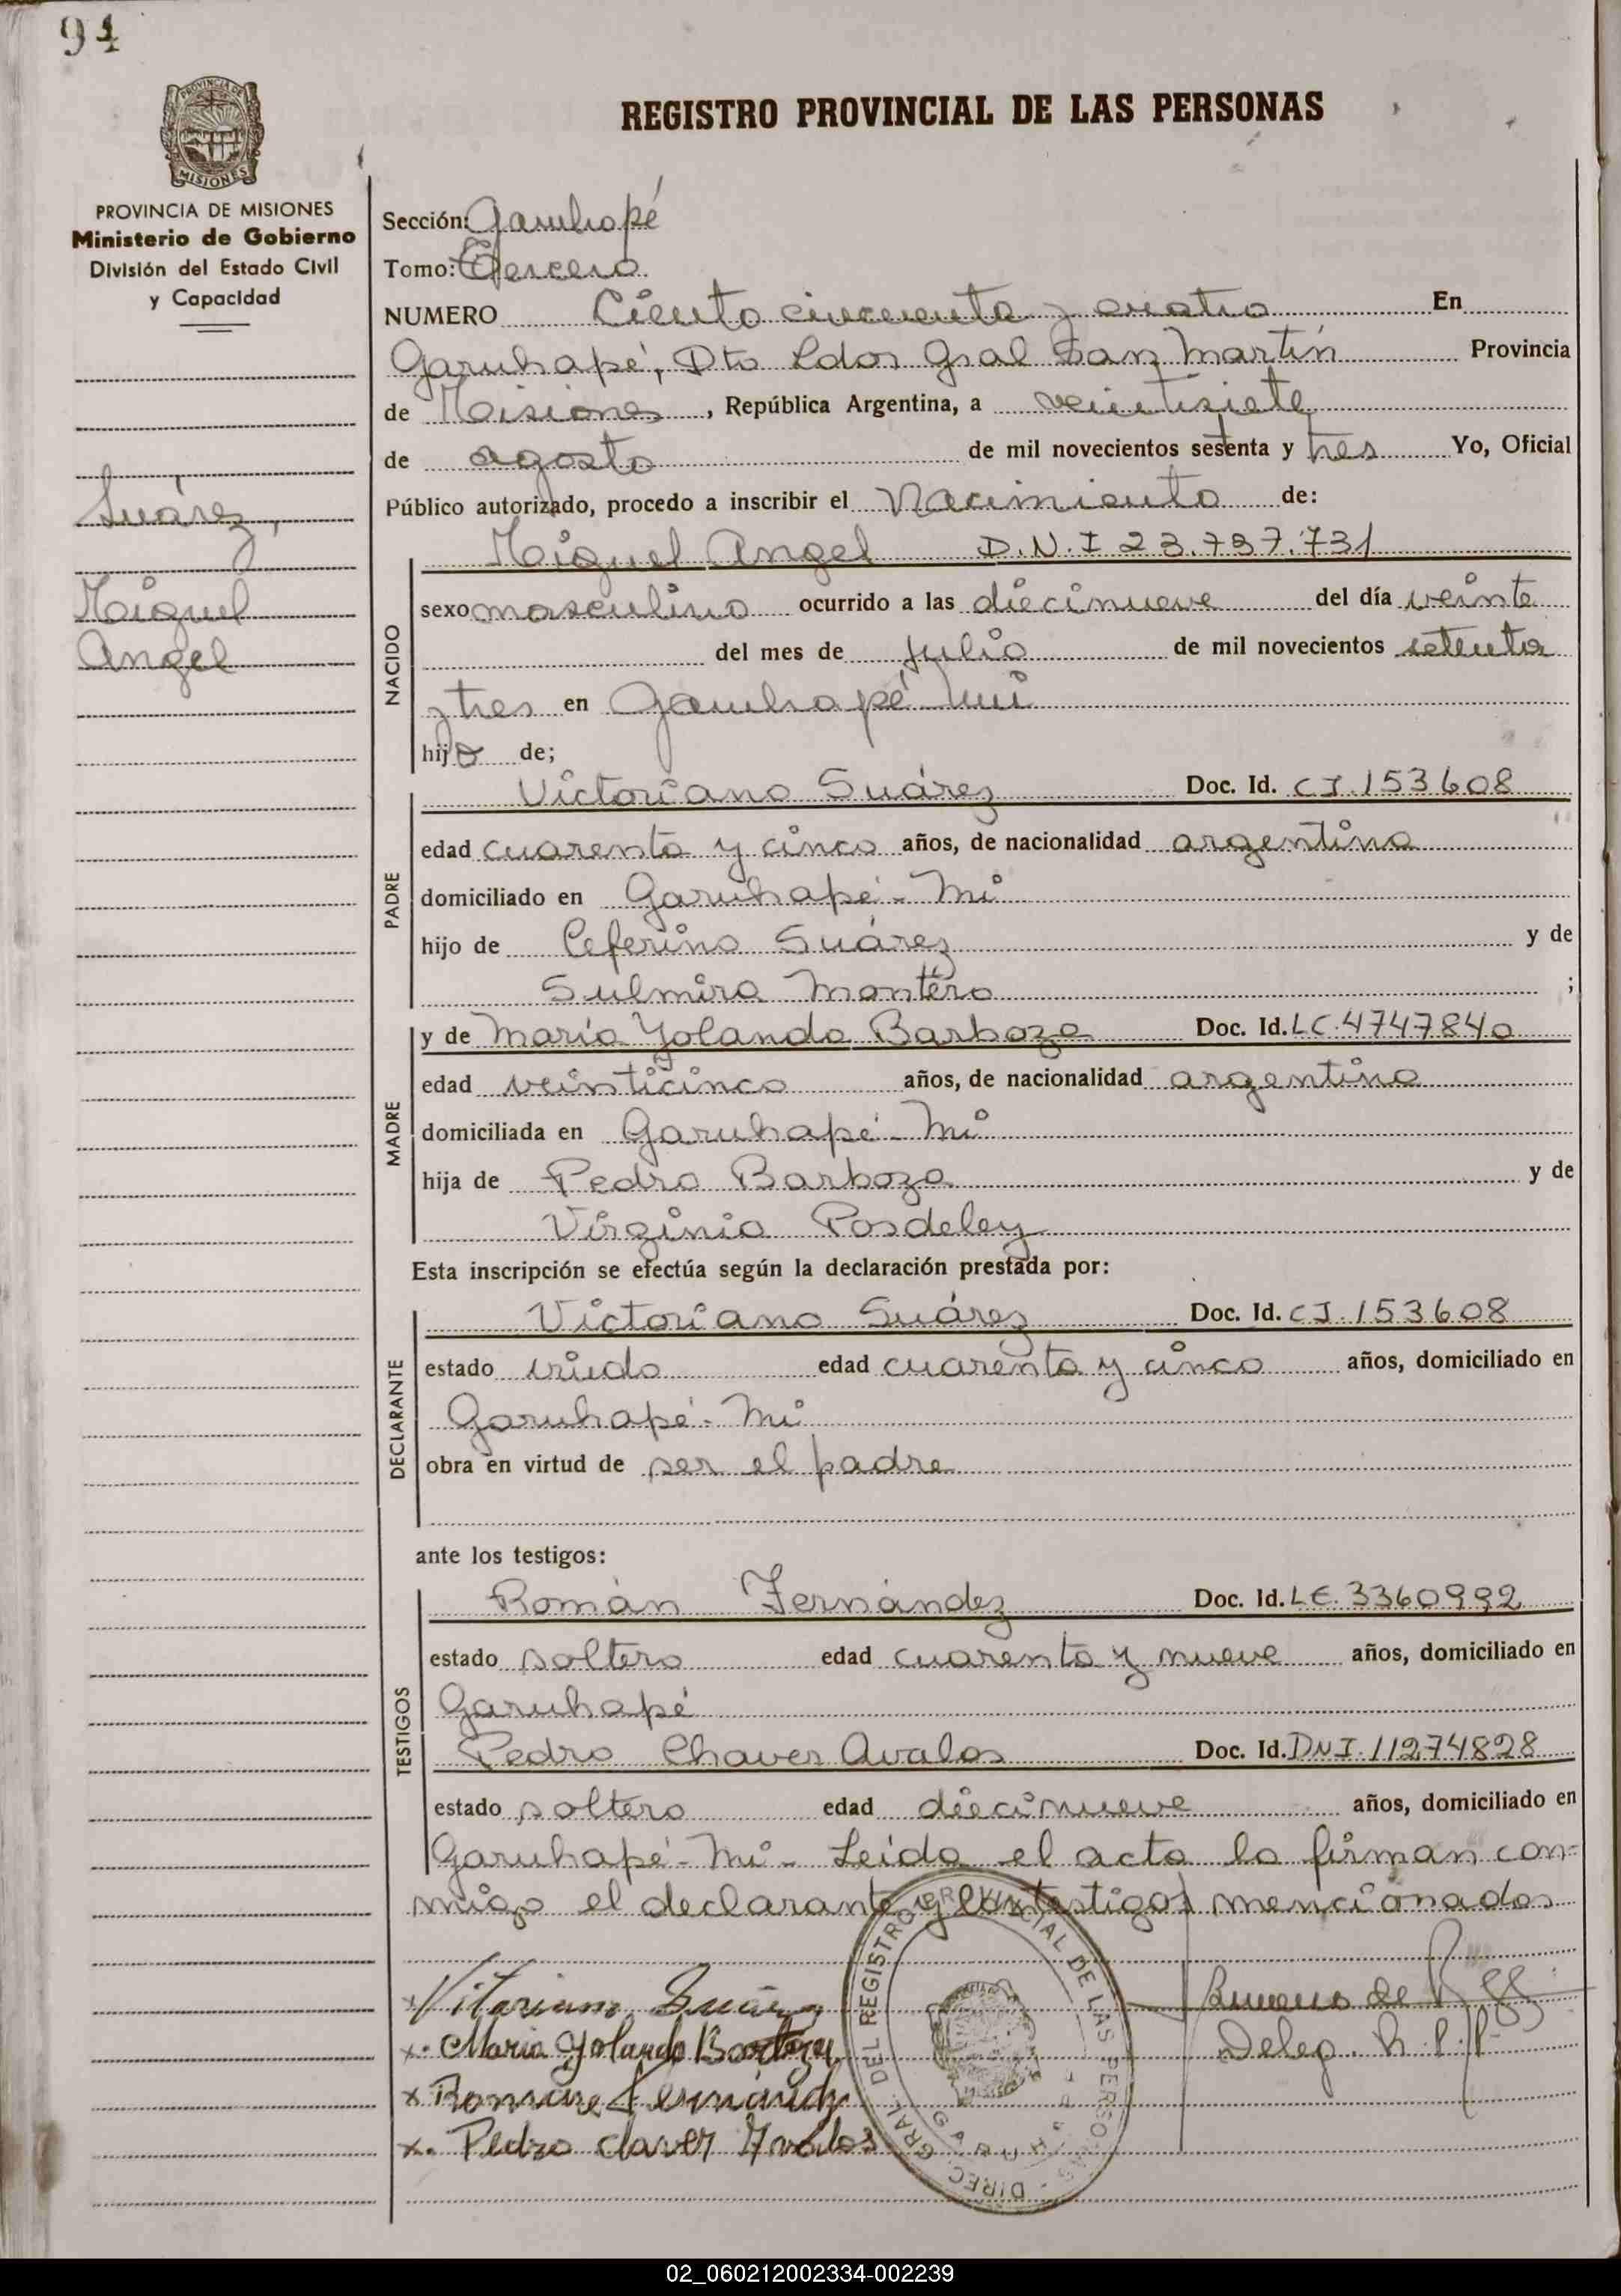 94
PROVINCIA DE MISIONES
REGISTRO PROVINCIAL DE LAS PERSONAS
PROVINCIA DE MISIONES
Ministerio de Gobierno
División del Estado Civil
y Capacidad
Suárez,
Miguel
Angel
Sección: Garuhapé
Tomo: Tercero
NUMERO Ciento cincuenta y cuatro En
Garuhapé, Dto Ldor Gral San Martín Provincia
de Misiones, República Argentina, a veintisiete
de agosto de mil novecientos setenta y tres Yo, Oficial
Público autorizado, procedo a inscribir el Nacimiento de:
Miguel Angel D.N.I 23.737.731
NACIDO
sexo masculino ocurrido a las diecinueve del día veinte
del mes de julio de mil novecientos setenta
y tres en Garuhapé Mí
hijo de;
PADRE
Victoriano Suárez Doc. Id. CI.153608
edad cuarenta y cinco años, de nacionalidad argentina
domiciliado en Garuhapé-Mí
hijo de Ceferino Suárez y de
Sulmira Montero ;
MADRE
y de María Yolanda Barboza Doc. Id. LC.4747840
edad veinticinco años, de nacionalidad argentina
domiciliada en Garuhapé-Mí
hija de Pedro Barboza y de
Virginia Posdeley
Esta inscripción se efectúa según la declaración prestada por:
DECLARANTE
Victoriano Suárez Doc. Id. CI.153608
estado viudo edad cuarenta y cinco años, domiciliado en
Garuhapé-Mí
obra en virtud de ser el padre
ante los testigos:
TESTIGOS
Román Fernández Doc. Id. LE.3360992
estado soltero edad cuarenta y nueve años, domiciliado en
Garuhapé
Pedro Chaver Avalos Doc. Id. DNI.11274828
estado soltero edad diecinueve años, domiciliado en
Garuhapé-Mí- Leída el acta la firman con-
migo el declarante y los testigos mencionados
x Vitoriano Suárez
x. Maria Yolanda Barboza
x Fernández
x. Pedro claver Avalos
DIREC. GRAL. DEL REGISTRO PROVINCIAL DE LAS PERSONAS
Deleg. R.P.P.
02_060212002334-002239